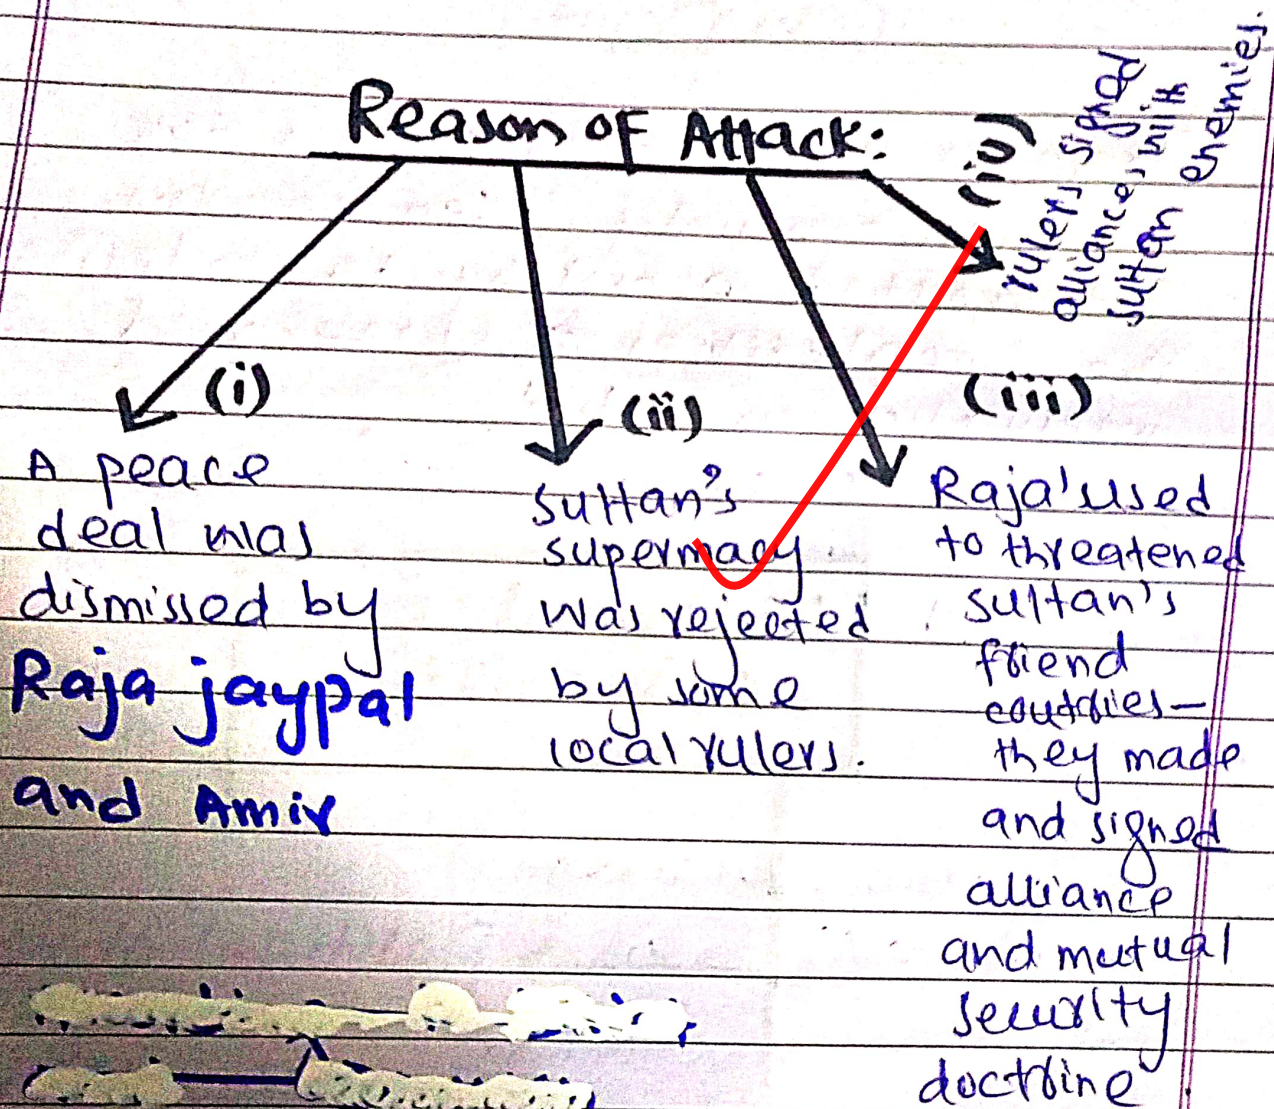 Reason of Attack:
(i)
A peace
deal was
dismissed by
Raja jaypal
and Amir
(ii)
Sultan's
supermacy
was rejected
by some
local rulers.
(iii)
Raja'used
to threatened
sultan's
friend
coutries-
they made
and signed
alliance
and mutual
security
doctrine
(iv)
rulers signed
alliances with
sultan enemies.